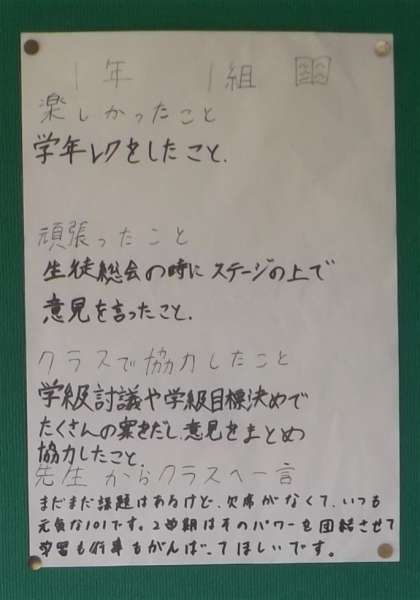 1年 1組
楽しかったこと
学年レクをしたこと.
頑張ったこと
生徒総会の時にステージの上で
意見を言ったこと.
クラスで協力したこと
学級討議や学級目標決めで
たくさんの案をだし、意見をまとめ
協力したこと.
先生からクラスへ一言
まだまだ課題はあるけど、欠席がなくて、いつも
元気な101です。2学期はそのパワーを団結させて
学習も行事もがんばってほしいです。